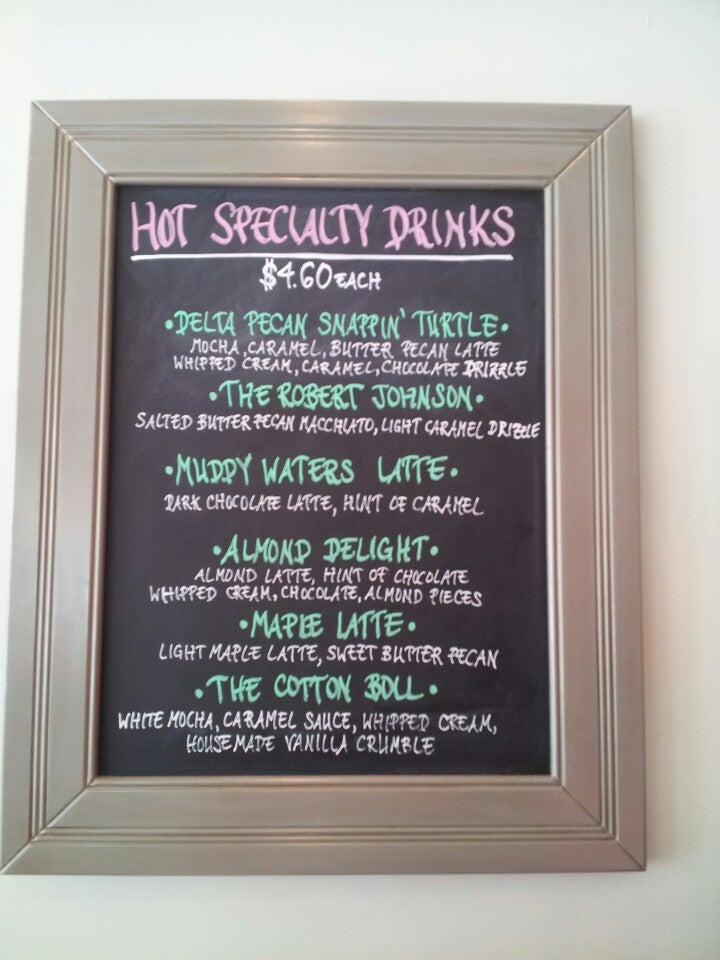 HOT SPECIALTY DRINKS
$4.60 EACH
•DELTA PECAN SNAPPIN' TURTLE•
MOCHA, CARAMEL, BUTTER PECAN LATTE
WHIPPED CREAM, CARAMEL, CHOCOLATE DRIZZLE
•THE ROBERT JOHNSON•
SALTED BUTTER PECAN MACCHIATO, LIGHT CARAMEL DRIZZLE
•MUDDY WATERS LATTE•
DARK CHOCOLATE LATTE, HINT OF CARAMEL
•ALMOND DELIGHT•
ALMOND LATTE, HINT OF CHOCOLATE
WHIPPED CREAM, CHOCOLATE, ALMOND PIECES
•MAPLE LATTE•
LIGHT MAPLE LATTE, SWEET BUTTER PECAN
•THE COTTON BOLL•
WHITE MOCHA, CARAMEL SAUCE, WHIPPED CREAM,
HOUSEMADE VANILLA CRUMBLE